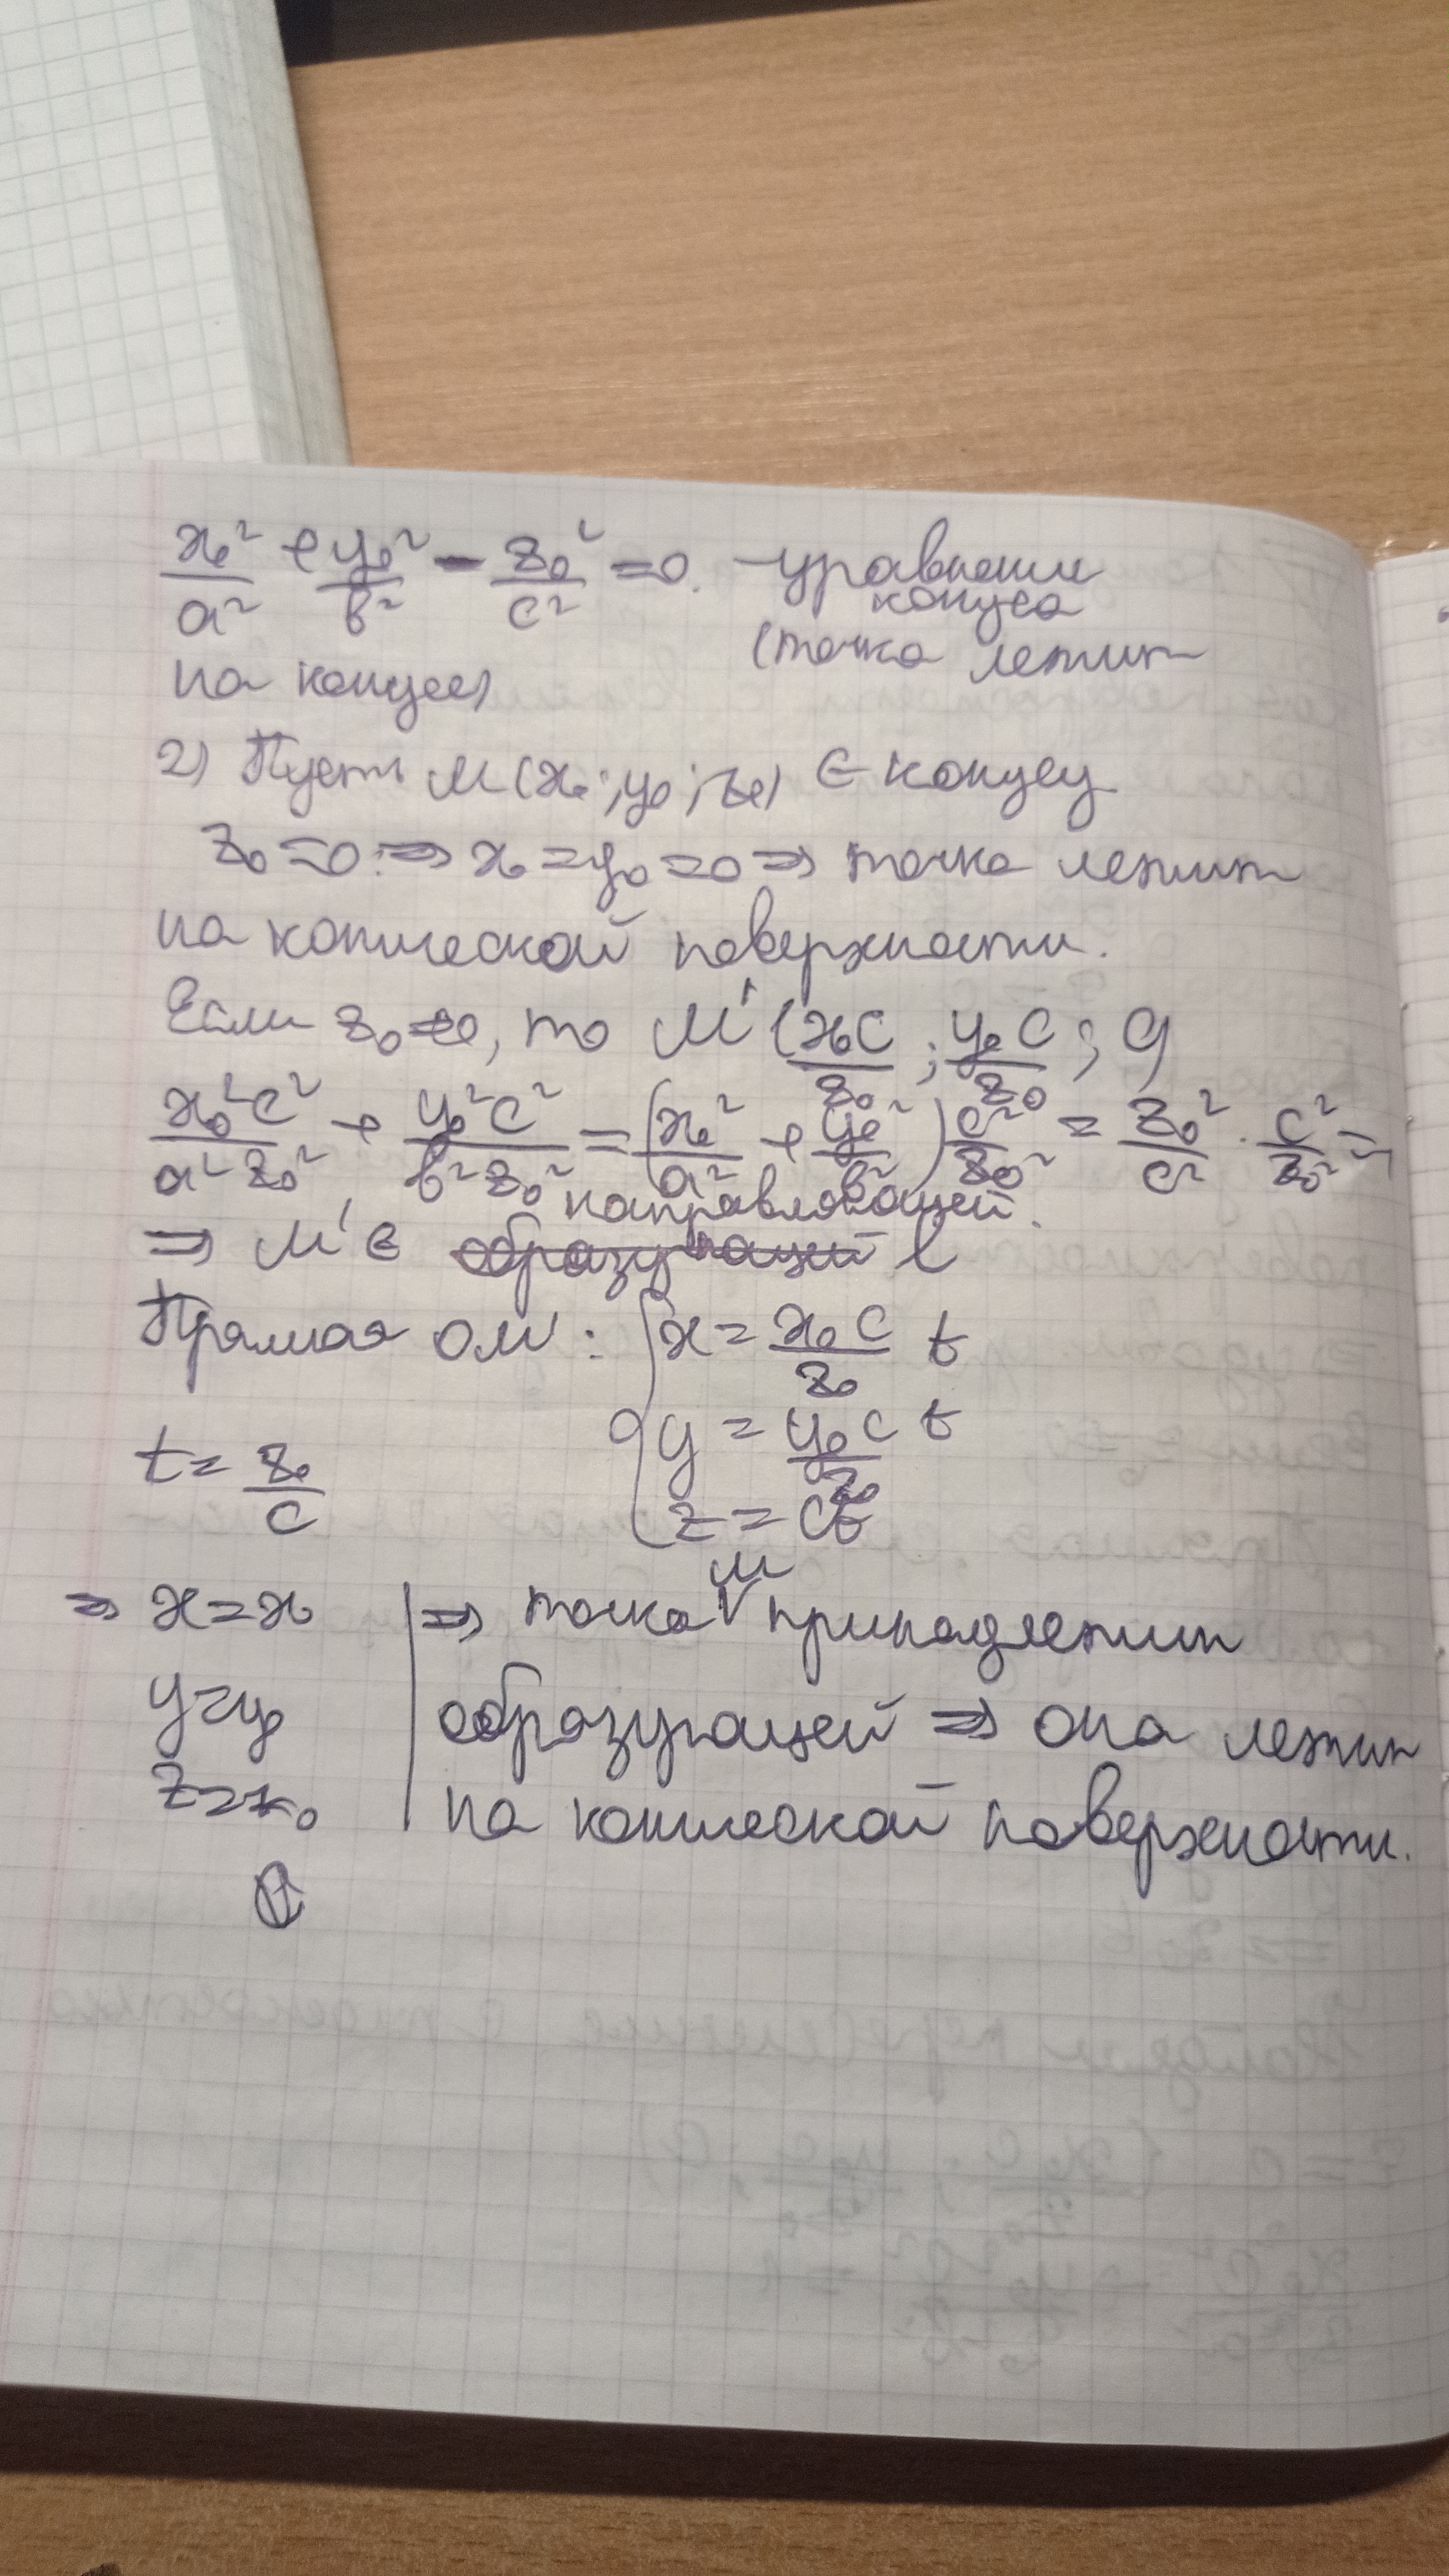 x₀²/a² + y₀²/b² - z₀²/c² = 0. - уравнение
конуса
(точка лежит
на конусе)
2) Пусть M(x₀; y₀; z₀) ∈ конусу
z₀ = 0 ⇒ x₀ = y₀ = 0 ⇒ точка лежит
на конической поверхности.
Если z₀ ≠ 0, то M'(x₀c/z₀ ; y₀c/z₀ ; c)
x₀²c²/a²z₀² + y₀²c²/b²z₀² = (x₀²/a² + y₀²/b²) c²/z₀² = z₀²/c² · c²/z₀² = 1
направляющей.
⇒ M' ∈ образующей l
Прямая OM': { x = x₀c/z₀ t
y = y₀c/z₀ t
t = z₀/c
z = ct
M
⇒ x = x₀ | ⇒ точка принадлежит
y = y₀ | образующей ⇒ она лежит
z = z₀ | на конической поверхности.